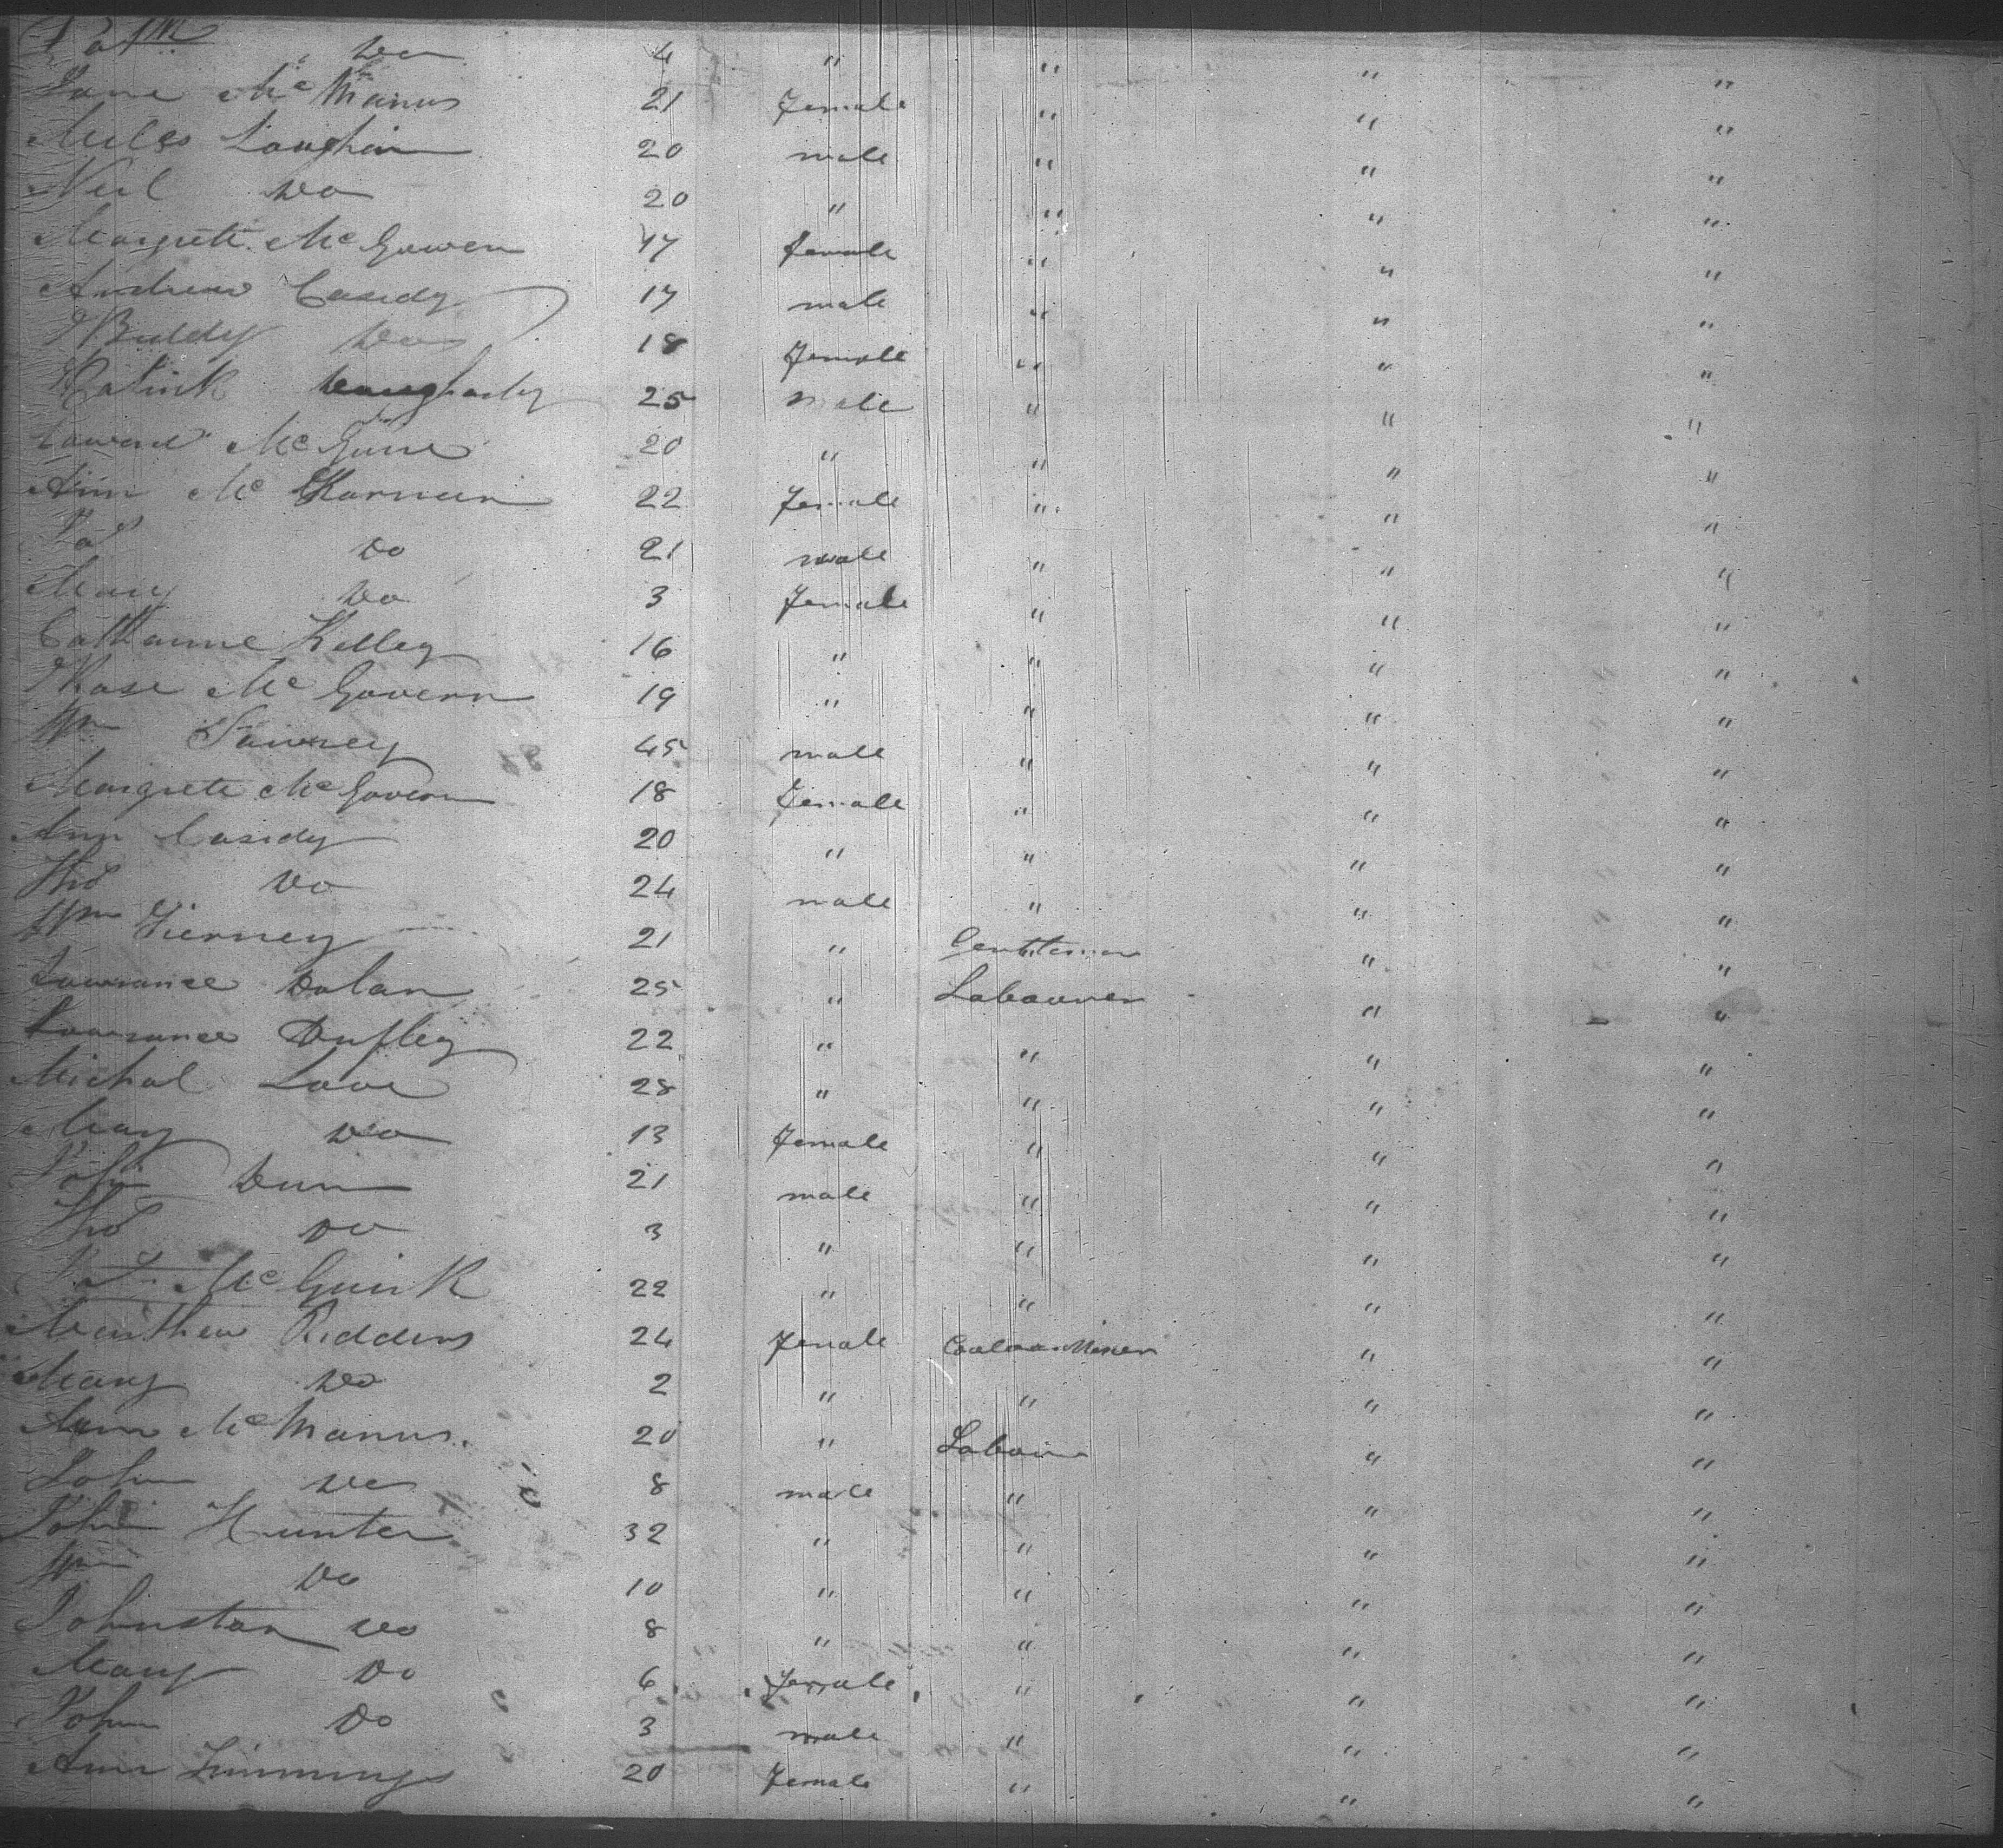 Pat Do 4 " " " "
Jane McManus 21 Female " " "
Miles Laughin 20 male " " "
Neil Do 20 " " " "
Margrete McGowen 17 Female " " "
Andrew Casidy 17 male " " "
Biddy Do 18 Female " " "
Patrick 25 Male " " "
Edward McGuire 20 " " " "
Ann Mc Kernan 22 Female " " "
Pat Do 21 male " " "
Mary Do 3 Female " " "
Catharine Kelley 16 " " " "
Rose McGovern 19 " " " "
Wm 45 male " " "
Margrete McGovern 18 Female " " "
Ann Casidy 20 " " " "
Tho Do 24 male " " "
Wm Tierney 21 " Gentleman " "
Lawrance Dolan 25 " Labourer " "
Lawrance Duffey 22 " " " "
Michal Love 28 " " " "
Mary Do 13 Female " " "
John Dunn 21 male " " "
Tho Do 3 " " " "
Pat McGuirk 22 " " " "
Matthew Riddins 24 Female " "
Mary Do 2 " " " "
Ann McManus 20 " Labour " "
John Do 8 male " " "
John Hunter 32 " " " "
Wm Do 10 " " " "
Johnston Do 8 " " " "
Mary Do 6 Female " " "
John Do 3 male " " "
Ann Timmings 20 Female " " "